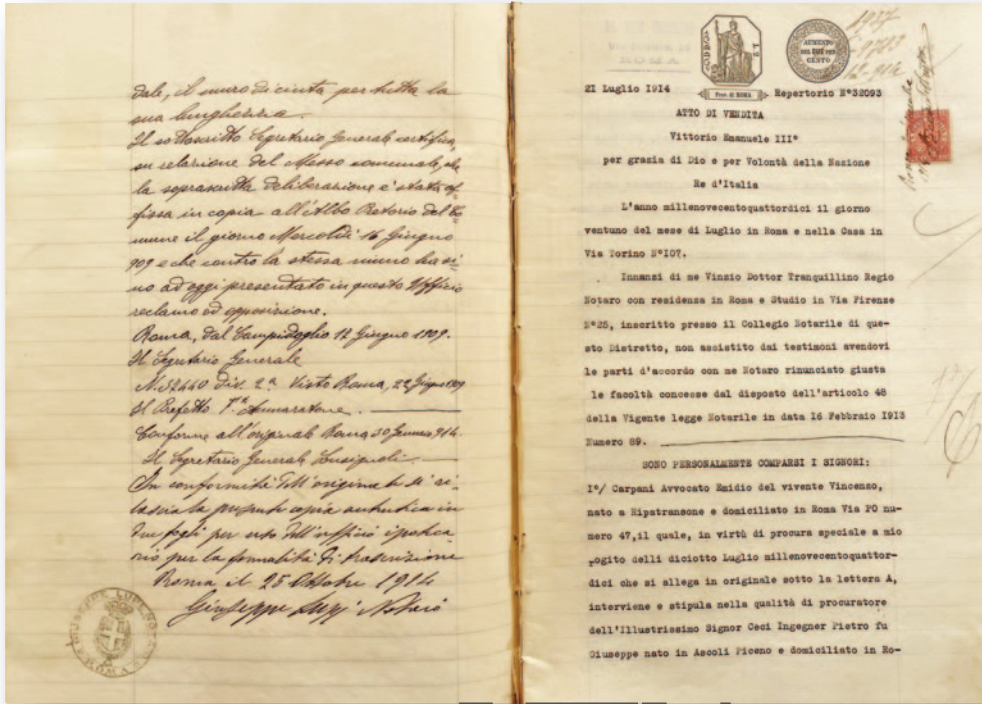 dale, il muro di cinta per tutta la
sua lunghezza.
Il sottoscritto Segretario Generale certifica,
su relazione del Messo comunale, che
la soprascritta deliberazione è stata af-
fissa in copia all'Albo Pretorio del Co-
mune il giorno Mercoldì 16 Giugno
909 e che contro la stessa niuno ha si-
no ad oggi presentato in questo Ufficio
reclamo od opposizione.
Roma, dal Campidoglio 17 Giugno 1909.
Il Segretario Generale
N. 32440 Div. 2ª Visto Roma, 22 Giugno 1909
Il Prefetto Fº Annaratone.
Conforme all'originale Roma 30 Gennaio 914.
Il Segretario Generale Lusignoli
In conformità dell'originale si ri-
lascia la presente copia autentica in
tre fogli per uso dell'ufficio ipoteca-
rio per la formalità di trascrizione
Roma il 25 Ottobre 1914
Giuseppe Notaio
ROMA
AUMENTO
DEL DUE PER
CENTO
Prov. di ROMA
1937
9713
12-914
21 Luglio 1914 Repertorio N°32093
ATTO DI VENDITA
Vittorio Emanuele III°
per grazia di Dio e per Volontà della Nazione
Re d'Italia
L'anno millenovecentoquattordici il giorno
ventuno del mese di Luglio in Roma e nella Casa in
Via Torino N°107.
Innanzi di me Vinzio Dottor Tranquillino Regio
Notaro con residenza in Roma e Studio in Via Firenze
N°25, inscritto presso il Collegio Notarile di que-
sto Distretto, non assistito dai testimoni avendovi
le parti d'accordo con me Notaro rinunciato giusta
le facoltà concesse dal disposto dell'articolo 48
della Vigente legge Notarile in data 16 Febbraio 1913
Numero 89.
SONO PERSONALMENTE COMPARSI I SIGNORI:
I°/ Carpani Avvocato Emidio del vivente Vincenzo,
nato a Ripatransone e domiciliato in Roma Via PO nu-
mero 47,il quale, in virtù di procura speciale a mio
rogito delli diciotto Luglio millenovecentoquattor-
dici che si allega in originale sotto la lettera A,
interviene e stipula nella qualità di procuratore
dell'Illustrissimo Signor Ceci Ingegner Pietro fu
Giuseppe nato in Ascoli Piceno e domiciliato in Ro-